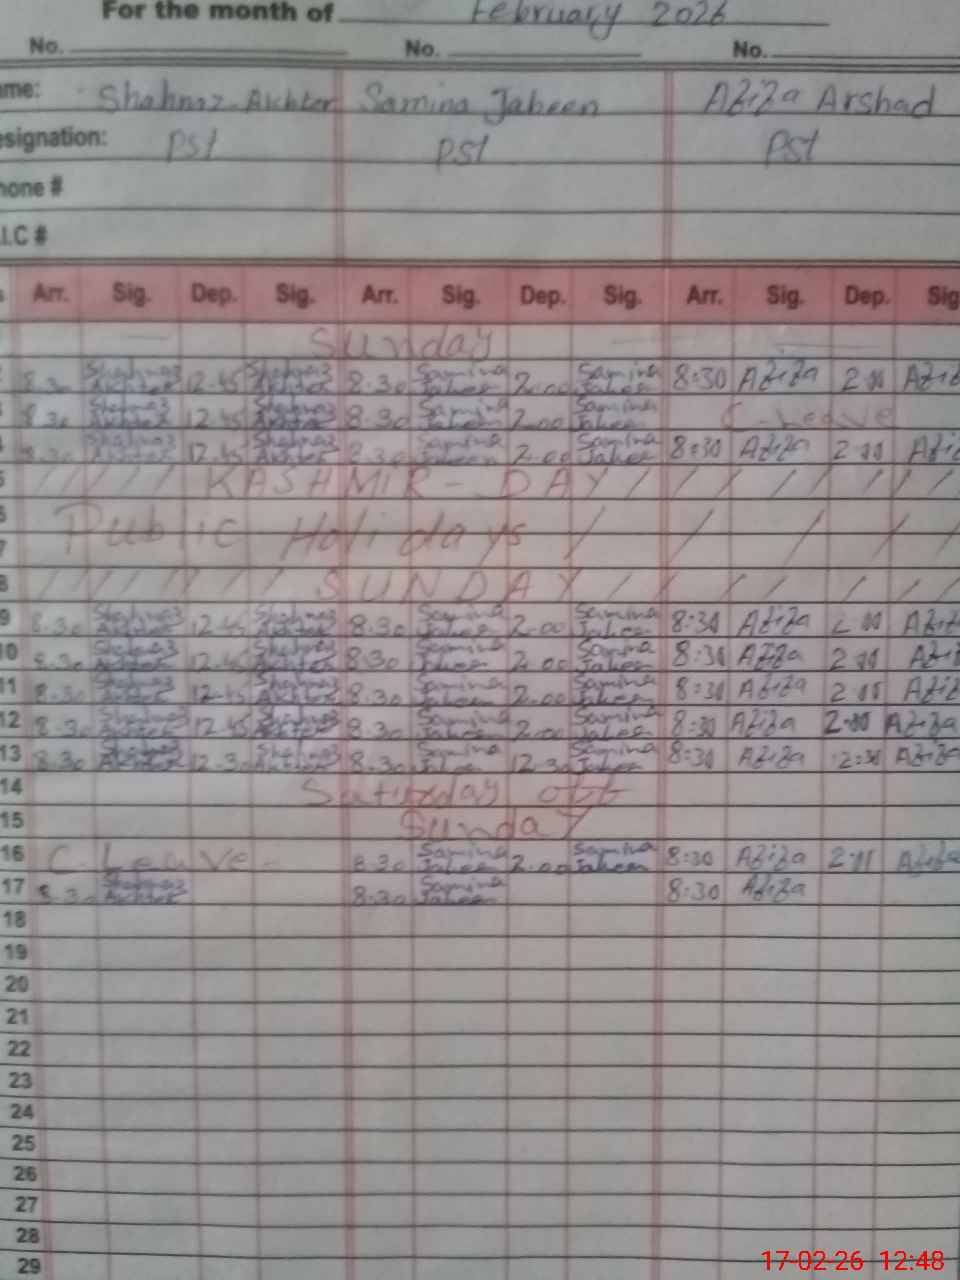 For the month of February 2026
No. No. No.
ame: Shahnaz Akhter Samina Jabeen Aziza Arshad
esignation: PST PST PST
hone #
.I.C #
Arr. Sig. Dep. Sig. Arr. Sig. Dep. Sig. Arr. Sig. Dep. Sig
Sunday
8.30 Shahnaz Akhter 12.45 Shahnaz Akhter 8.30 Samina Jabeen 2.00 Samina Jabeen 8:30 Aziza 2:00 Aziz
8.30 Shahnaz Akhter 12.45 Shahnaz Akhter 8.30 Samina Jabeen 2.00 Samina Jabeen C-Leave
8.30 Shahnaz Akhter 12.45 Shahnaz Akhter 8.30 Samina Jabeen 2.00 Samina Jabeen 8:30 Aziza 2:00 Aziz
KASHMIR - DAY
Public Holidays
7
8 SUNDAY
9 8.30 Shahnaz Akhter 12.45 Shahnaz Akhter 8.30 Samina Jabeen 2.00 Samina Jabeen 8:30 Aziza 2:00 Aziz
10 8.30 Shahnaz Akhter 12.45 Shahnaz Akhter 8.30 Samina Jabeen 2.00 Samina Jabeen 8:30 Aziza 2:00 Azi
11 8.30 Shahnaz Akhter 12.45 Shahnaz Akhter 8.30 Samina Jabeen 2.00 Samina Jabeen 8:30 Aziza 2:00 Aziz
12 8.30 Shahnaz Akhter 12.45 Shahnaz Akhter 8.30 Samina Jabeen 2.00 Samina Jabeen 8:30 Aziza 2:00 Aziza
13 8.30 Shahnaz Akhter 12.30 Shahnaz Akhter 8.30 Samina Jabeen 12.30 Samina Jabeen 8:30 Aziza 12:30 Aziza
14 Saturday off
15 Sunday
16 C-Leave - 8.30 Samina Jabeen 2.00 Samina Jabeen 8:30 Aziza 2:00 Aziza
17 8.30 Shahnaz Akhter 8.30 Samina Jabeen 8:30 Aziza
18
19
20
21
22
23
24
25
26
27
28
29
17-02-26 12:48